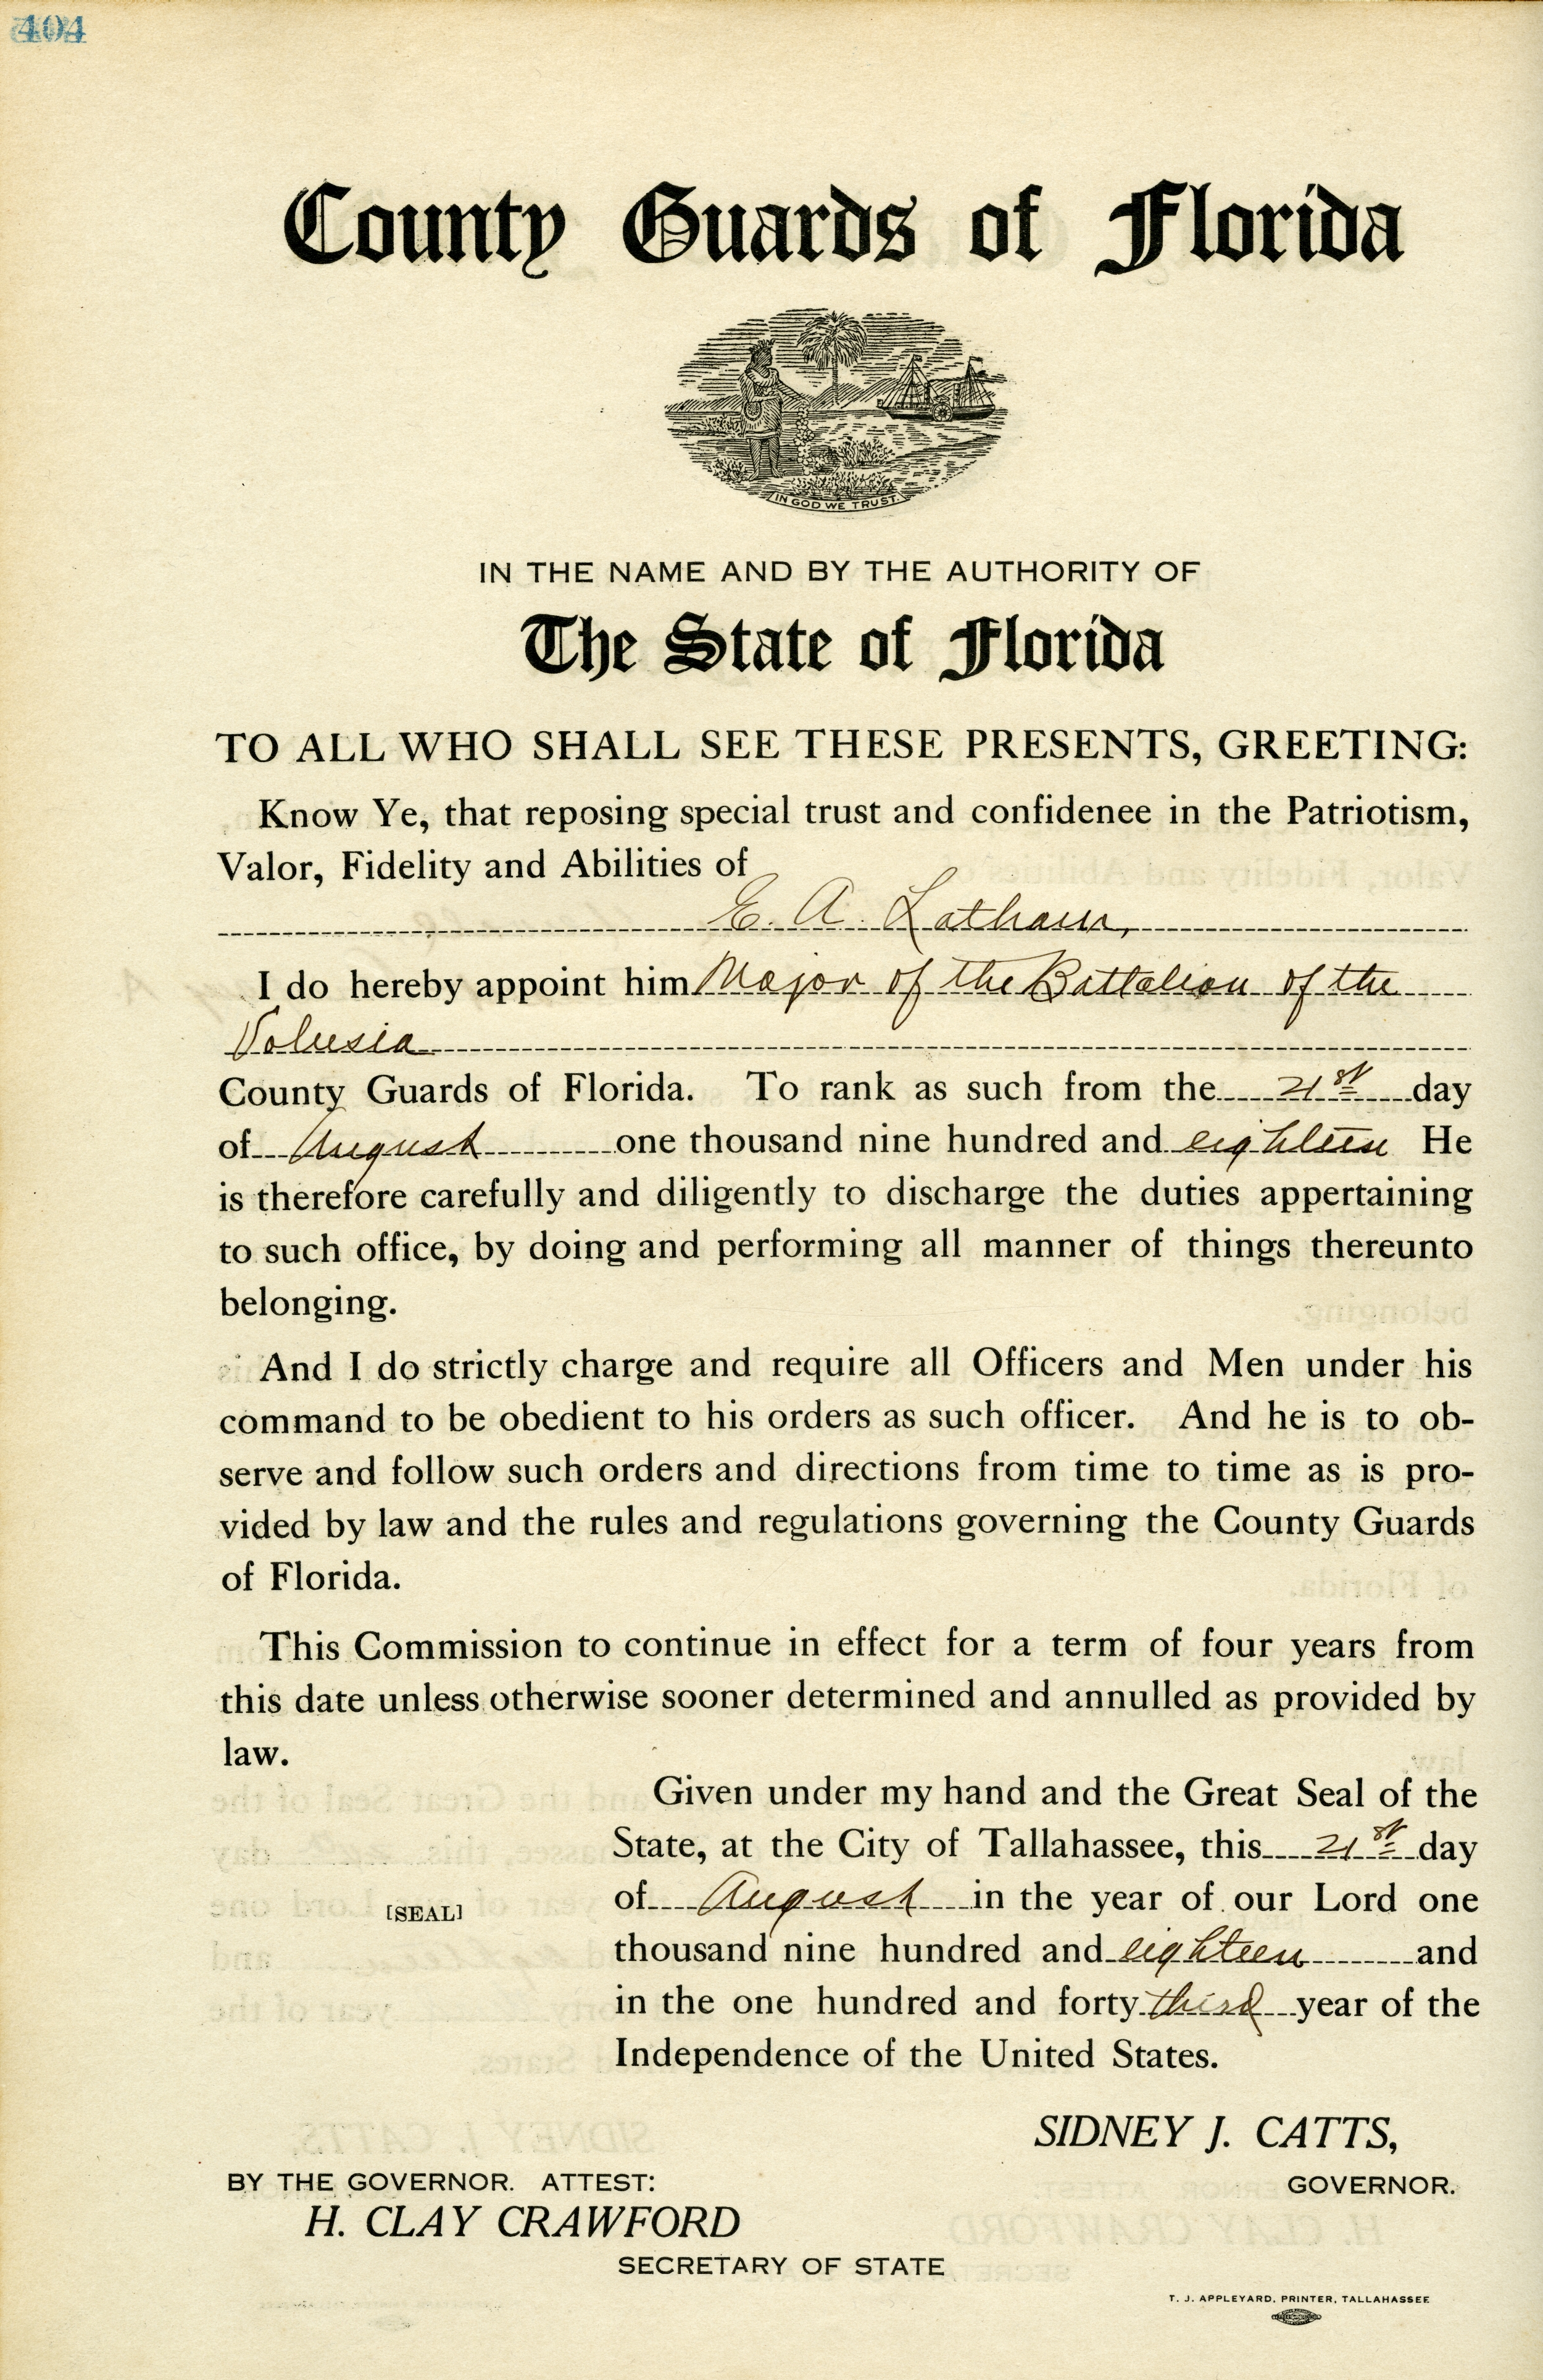 404
County Guards of Florida
IN GOD WE TRUST.
IN THE NAME AND BY THE AUTHORITY OF
The State of Florida
TO ALL WHO SHALL SEE THESE PRESENTS, GREETING:
Know Ye, that reposing special trust and confidenee in the Patriotism,
Valor, Fidelity and Abilities of
E. A. Latham,
I do hereby appoint him Major of the Battalion of the
Volusia
County Guards of Florida. To rank as such from the 21st day
of August one thousand nine hundred and eighteen He
is therefore carefully and diligently to discharge the duties appertaining
to such office, by doing and performing all manner of things thereunto
belonging.
And I do strictly charge and require all Officers and Men under his
command to be obedient to his orders as such officer. And he is to ob-
serve and follow such orders and directions from time to time as is pro-
vided by law and the rules and regulations governing the County Guards
of Florida.
This Commission to continue in effect for a term of four years from
this date unless otherwise sooner determined and annulled as provided by
law.
Given under my hand and the Great Seal of the
State, at the City of Tallahassee, this 21st day
of August in the year of our Lord one
[SEAL]
thousand nine hundred and eighteen and
in the one hundred and forty third year of the
Independence of the United States.
SIDNEY J. CATTS,
BY THE GOVERNOR. ATTEST:
GOVERNOR.
H. CLAY CRAWFORD
SECRETARY OF STATE
T. J. APPLEYARD, PRINTER, TALLAHASSEE